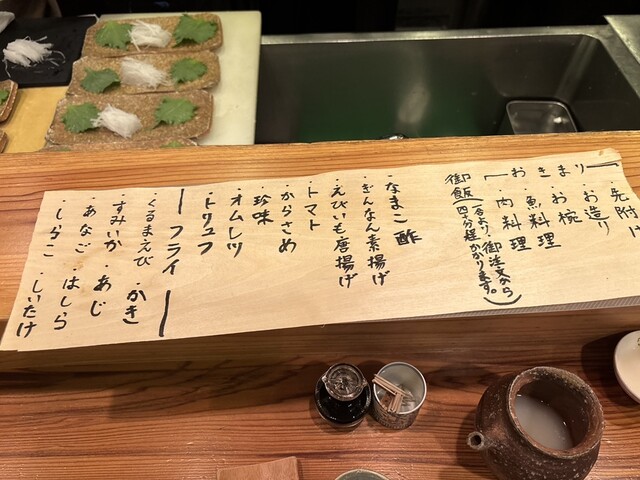 おきまり
・先附け
・お造り
・お椀
・魚料理
・肉料理
御飯(一合より・御注文から
四十分程かかります。)
・なまこ酢
・ぎんなん素揚げ
・えびいも唐揚げ
・トマト
・からさめ
・珍味
・オムレツ
・トリュフ
フライ
・くるまえび ・かき
・すみいか ・あじ
・あなご ・はしら
・しらこ ・しいたけ